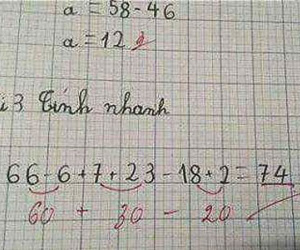 a = 58 - 46
a = 12
i 3 Tính nhanh
66 - 6 + 7 + 23 - 18 + 2 = 74
60 + 30 - 20